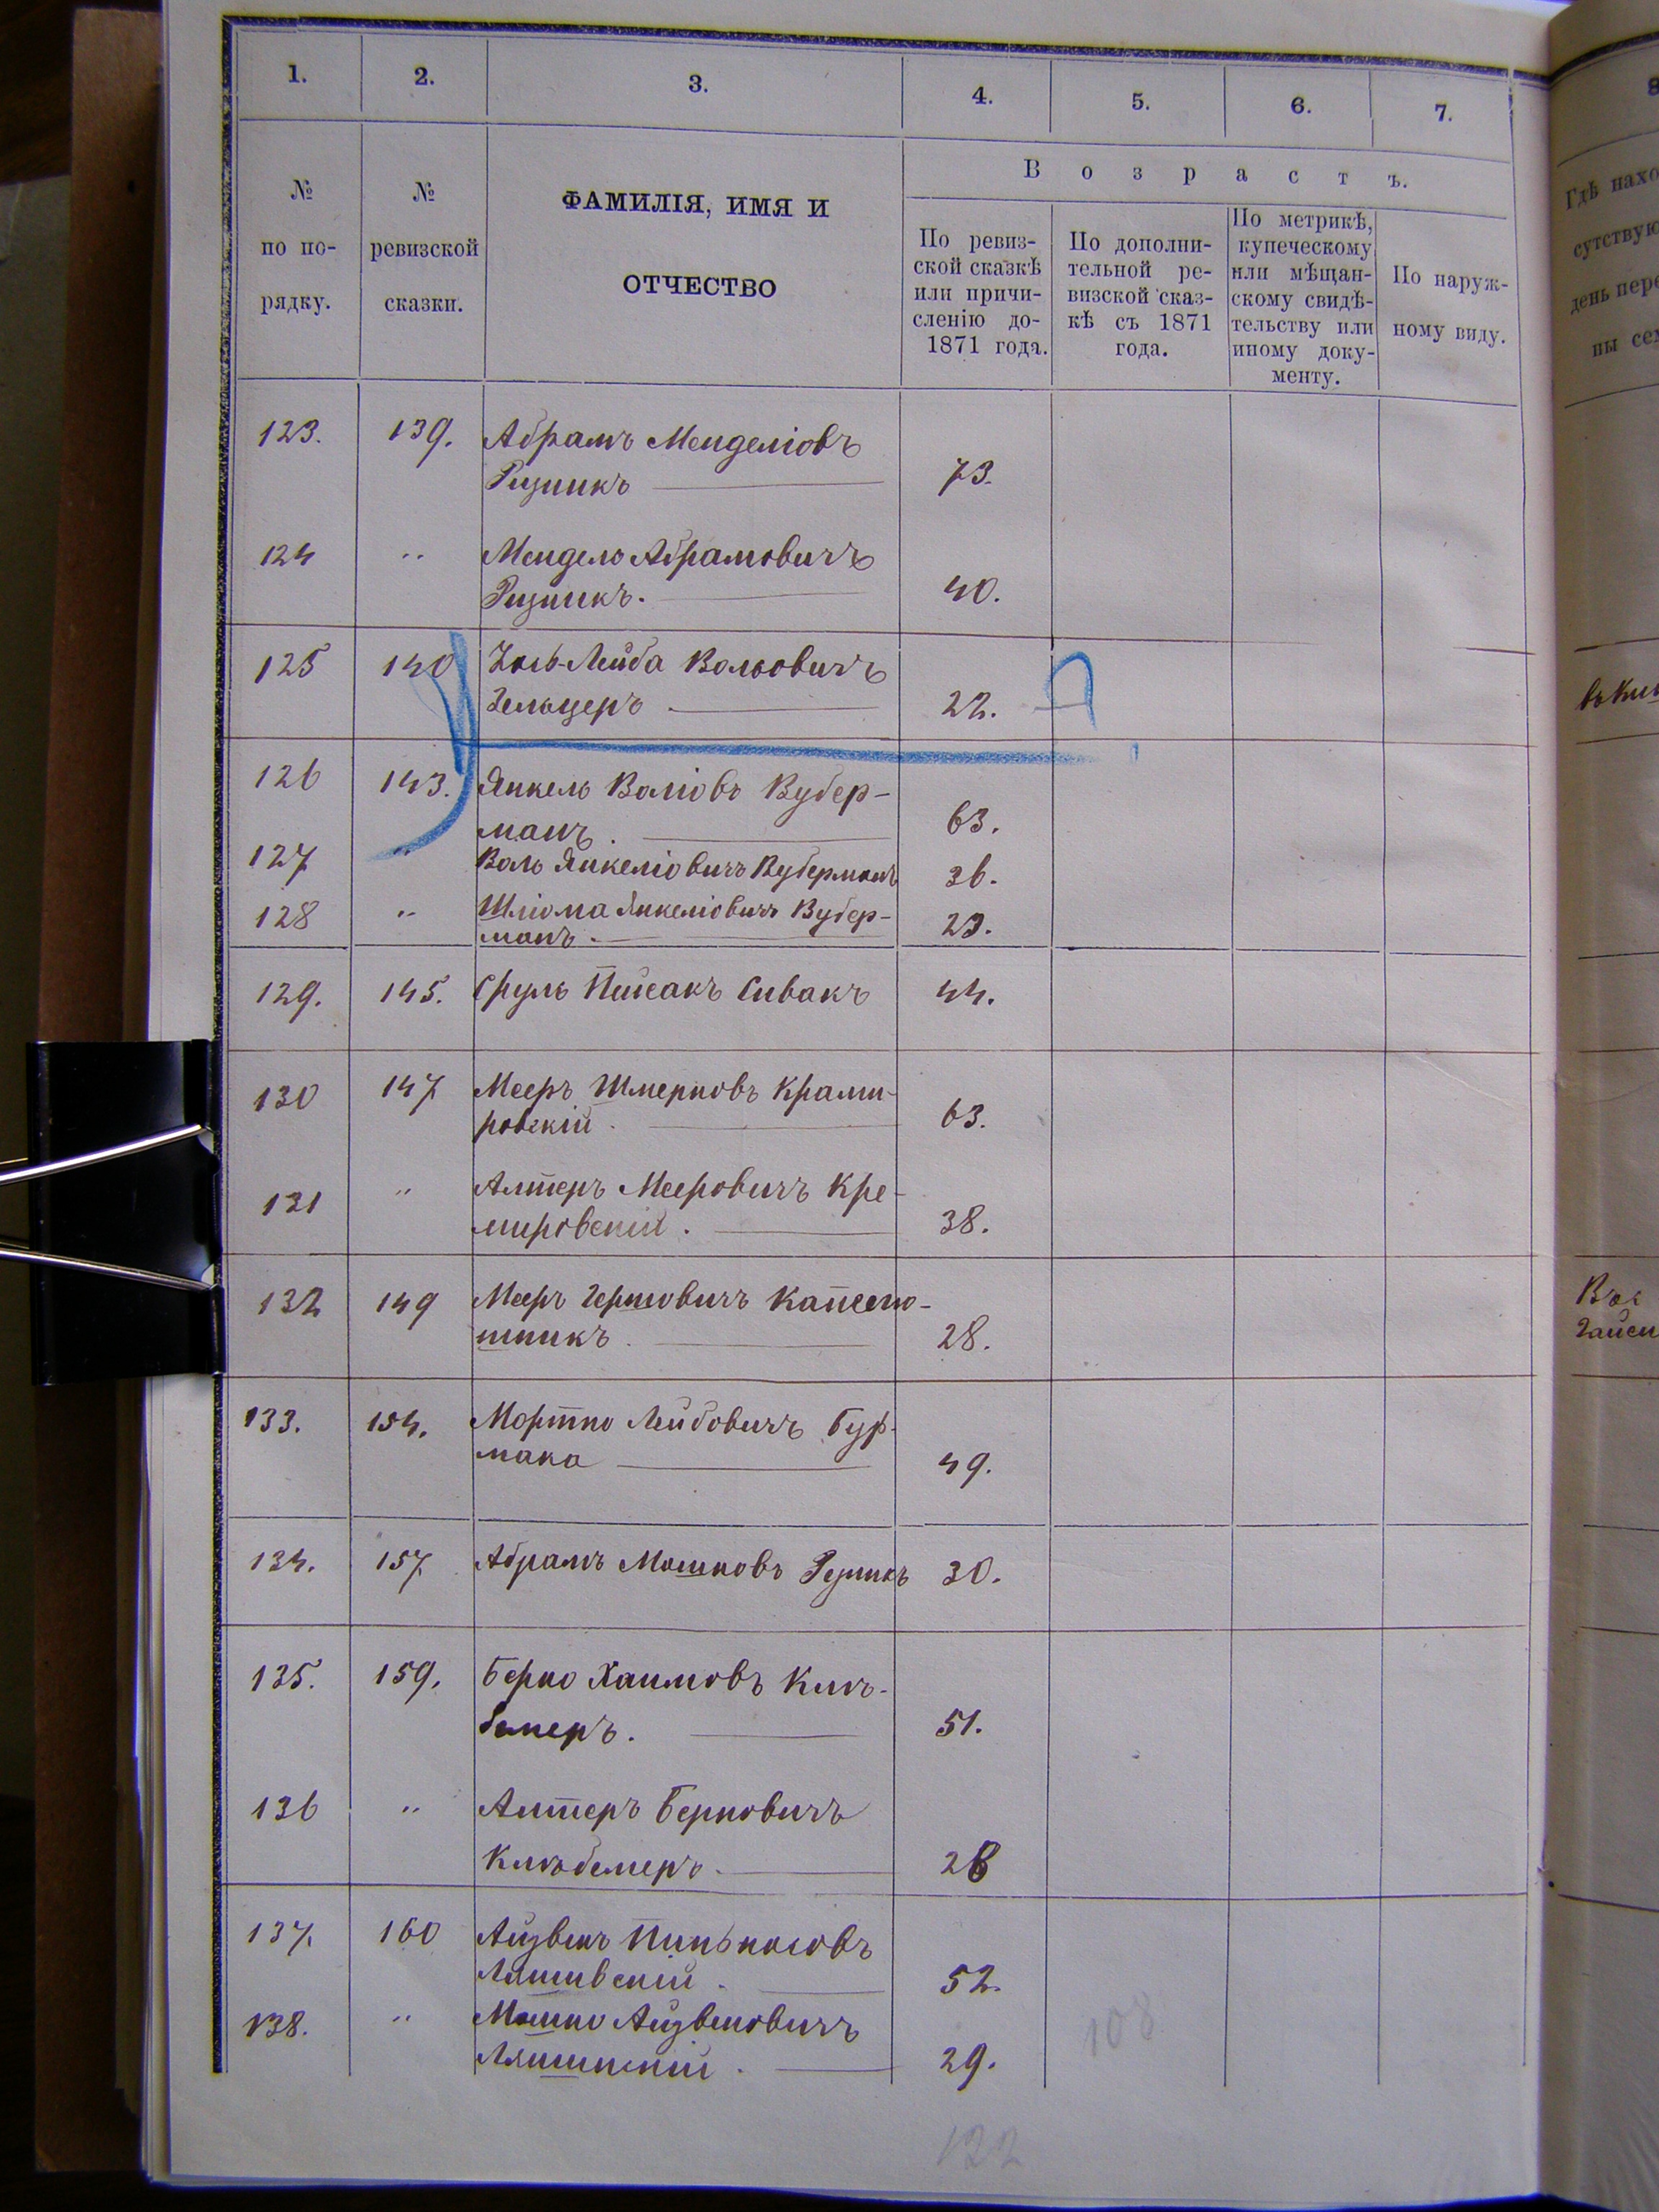 1. 2. 3. 4. 5. 6. 7. 8
№ по по-рядку.
№ ревизской сказки.
ФАМИЛІЯ, ИМЯ И
ОТЧЕСТВО
Возрастъ.
По ревиз-
ской сказкѣ
или причи-
сленію до-
1871 года.
По дополни-
тельной ре-
визской сказ-
кѣ съ 1871
года.
По метрикѣ,
купеческому
или мѣщан-
скому свидѣ-
тельству или
иному доку-
менту.
По наруж-
ному виду.
Гдѣ нахо
сутствую
день пере
ны сем
123. 139. Абрамъ Менделіовъ
Ризникъ 73.
124 " Мендель Абрамовичъ
Ризникъ. 40.
125 140 Хось-Лейба Вольовичъ
Гельцеръ 22.
126 143. Янкель Воліовъ Вубер-
манъ. 63.
127 " Воль Янкеліовичъ Вуберманъ 36.
128 " Шліома Янкеліовичъ Вубер-
манъ. 23.
129. 145. Сруль Пейсакъ Сивакъ 44.
130 147 Мееръ Шмерковъ Крами-
ровскій. 63.
131 " Алтеръ Мееровичъ Кре-
мировскій. 38.
132 149 Мееръ Гершовичъ Капелю-
шникъ. 28.
133. 154. Мортко Лейбовичъ Бур-
мака 49.
134. 157. Абрамъ Мошковъ Резникъ 30.
135. 159. Берко Хаимовъ
51.
136 " Алтеръ Берковичъ
28
137. 160 Айзвенъ Пинькосовъ
Ляшивскій. 52.
138. " Мошко Айзвеновичъ
Ляшинскій. 29.
108
122